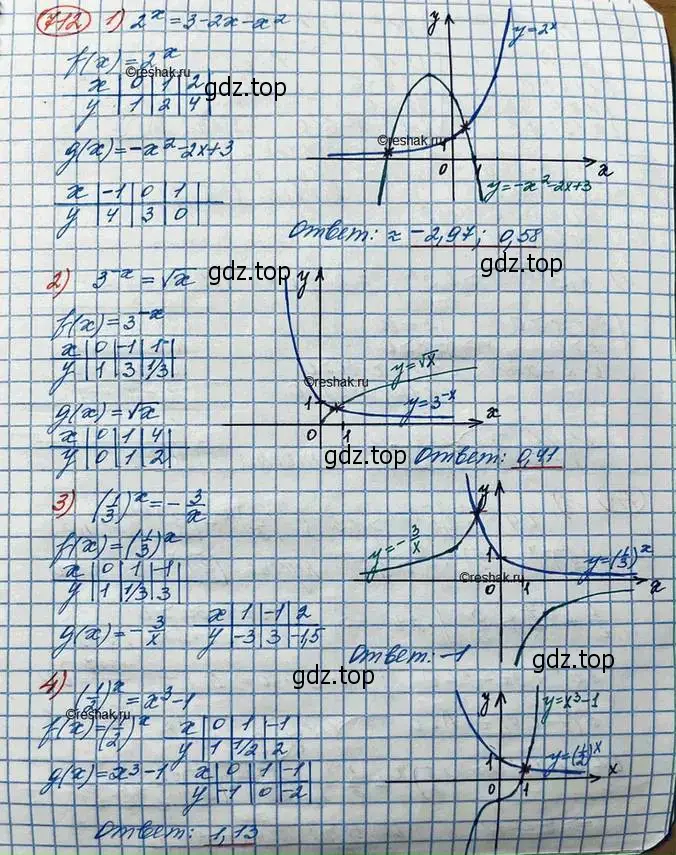 712 1) 2^x = 3-2x-x²
f(x) = 2^x
©reshak.ru
gdz.top
x | 0 | 1 | 2
y | 1 | 2 | 4
g(x) = -x²-2x+3
x | -1 | 0 | 1
y | 4 | 3 | 0
y
y=2^x
©reshak.ru
1
0 1 x
y=-x²-2x+3
Ответ: ≈ -2,97; 0,58
gdz.top
gdz.top
2) 3^-x = √x
f(x) = 3^-x
x | 0 | -1 | 1
y | 1 | 3 | 1/3
g(x) = √x
x | 0 | 1 | 4
y | 0 | 1 | 2
y
©reshak.ru
y=√x
y=3^-x
1
0 1 x
gdz.top
Ответ: 0,41
3) (1/3)^x = - 3/x
f(x) = (1/3)^x
x | 0 | 1 | -1
y | 1 | 1/3 | 3
g(x) = - 3/x
x | 1 | -1 | 2
y | -3 | 3 | -1,5
y
y=-3/x
1
y=(1/3)^x
©reshak.ru
0 1 x
Ответ: -1
gdz.top
gdz.top
4) (1/2)^x = x³-1
©reshak.ru
f(x) = (1/2)^x
x | 0 | 1 | -1
y | 1 | 1/2 | 2
g(x) = x³-1
x | 0 | 1 | -1
y | -1 | 0 | -2
y
y=x³-1
1
y=(1/2)^x
0 1 x
Ответ: 1,13
gdz.top